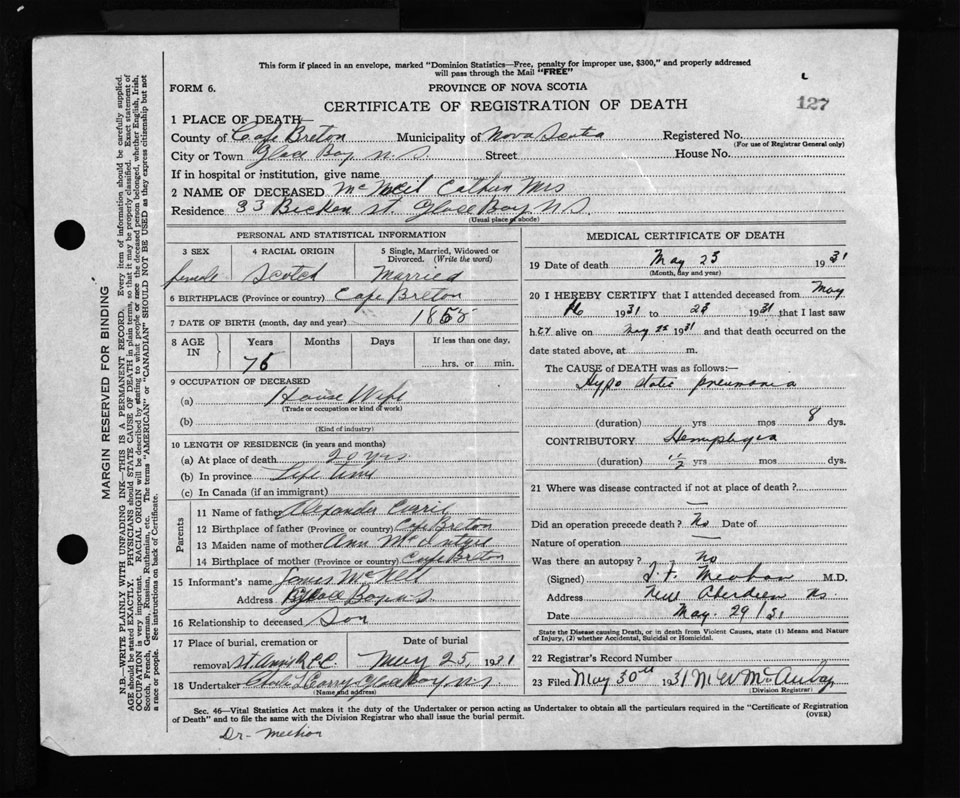 This form if placed in an envelope, marked "Dominion Statistics—Free, penalty for improper use, $300," and properly addressed
will pass through the Mail "FREE"
FORM 6.
PROVINCE OF NOVA SCOTIA
127
CERTIFICATE OF REGISTRATION OF DEATH
1 PLACE OF DEATH—
County of Cape Breton Municipality of Nova Scotia Registered No.
(For use of Registrar General only)
City or Town Glace Bay N.S. Street House No.
If in hospital or institution, give name
2 NAME OF DECEASED McNeil Mrs
Residence 33 St. Glace Bay N.S.
(Usual place of abode)
PERSONAL AND STATISTICAL INFORMATION
3 SEX 4 RACIAL ORIGIN 5 Single, Married, Widowed or
Divorced. (Write the word)
female Scotch Married
6 BIRTHPLACE (Province or country) Cape Breton
7 DATE OF BIRTH (month, day and year)
8 AGE IN Years Months Days If less than one day,
hrs. or min.
9 OCCUPATION OF DECEASED
(a) House Wife
(Trade or occupation or kind of work)
(b)
(Kind of industry)
10 LENGTH OF RESIDENCE (in years and months)
(a) At place of death 20 yrs
(b) In province Life time
(c) In Canada (if an immigrant)
Parents
11 Name of father Alexander Currie
12 Birthplace of father (Province or country) Cape Breton
13 Maiden name of mother Ann McIntyre
14 Birthplace of mother (Province or country) Cape Breton
15 Informant's name James McNeil
Address Glace Bay N.S
16 Relationship to deceased Son
17 Place of burial, cremation or Date of burial
removal St. Anns R.C.C. May 25, 1931
18 Undertaker Glace Bay N.S
(Name and address)
MEDICAL CERTIFICATE OF DEATH
19 Date of death May 23 1931
(Month, day and year)
20 I HEREBY CERTIFY that I attended deceased from May
16 1931 to 23 1931 that I last saw
her alive on May 1931 and that death occurred on the
date stated above, at m.
The CAUSE OF DEATH was as follows:—
Hypo static pneumonia
(duration) yrs mos 8 dys.
CONTRIBUTORY Hemiplegia
(duration) yrs mos dys.
21 Where was disease contracted if not at place of death?
Did an operation precede death? No Date of
Nature of operation
Was there an autopsy? no
(Signed) M.D.
Address New Aberdeen NS
Date May. 29/31
State the Disease causing Death, or in death from Violent Causes, state (1) Means and Nature
of Injury, (2) whether Accidental, Suicidal or Homicidal.
22 Registrar's Record Number
23 Filed May 30th 1931 M W
(Division Registrar)
Sec. 46—Vital Statistics Act makes it the duty of the Undertaker or person acting as Undertaker to obtain all the particulars required in the "Certificate of Registration
of Death" and to file the same with the Division Registrar who shall issue the burial permit.
(OVER)
Dr.
MARGIN RESERVED FOR BINDING
N.B.—WRITE PLAINLY WITH UNFADING INK—THIS IS A PERMANENT RECORD. Every item of information should be carefully supplied.
AGE should be stated EXACTLY. PHYSICIANS should STATE CAUSE OF DEATH in plain terms, so that it may be properly classified. Exact statement of
OCCUPATION is very important. RACIAL ORIGIN will be described by stating to what people or race the deceased person belonged, whether English, Irish,
Scotch, French, German, Russian, Ruthenian, etc. The terms "AMERICAN" or "CANADIAN" SHOULD NOT BE USED as they express citizenship but not
a race or people. See instructions on back of Certificate.